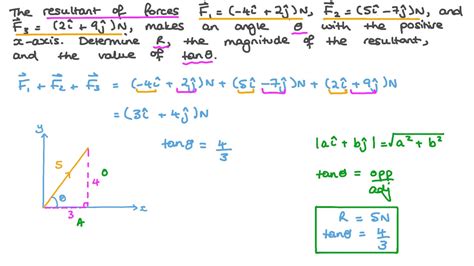 The resultant of forces F⃗₁ = (-4î + 2ĵ)N, F⃗₂ = (5î - 7ĵ)N, and
F⃗₃ = (2î + 9ĵ)N, makes an angle θ with the positive
x-axis. Determine R, the magnitude of the resultant,
and the value of tanθ.
F⃗₁ + F⃗₂ + F⃗₃ = (-4î + 2ĵ)N + (5î - 7ĵ)N + (2î + 9ĵ)N
= (3î + 4ĵ)N
tanθ = 4/3
|aî + bĵ| = √a² + b²
tanθ = opp/adj
R = 5N
tanθ = 4/3
y
5
4
O
θ
3
A
x